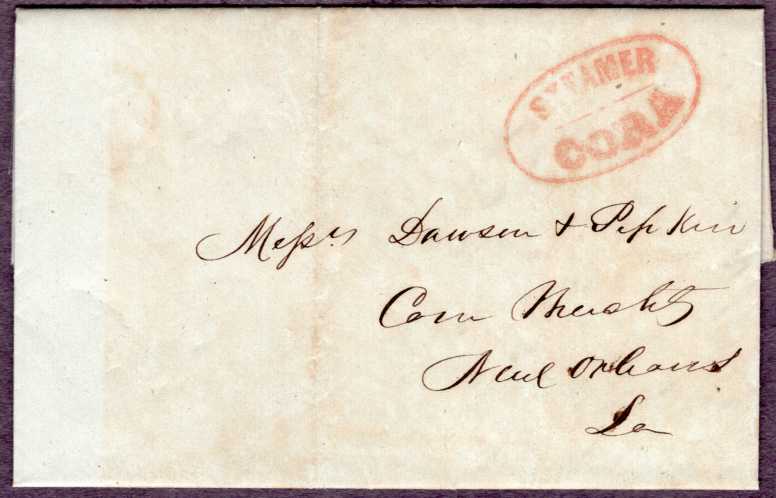 STEAMER
CORA
Messrs Dawson & Pipkin
Com Merchts
New Orleans
La